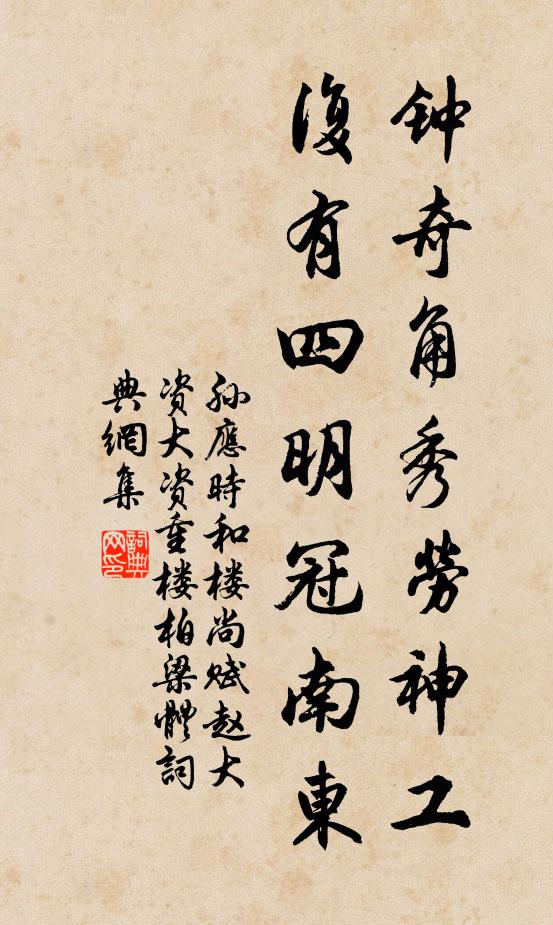 钟奇角秀劳神工
復有四明冠南東
孙應時和楼尚赋赵大
资大资重楼柏梁體詞
典網集
詞典
网印